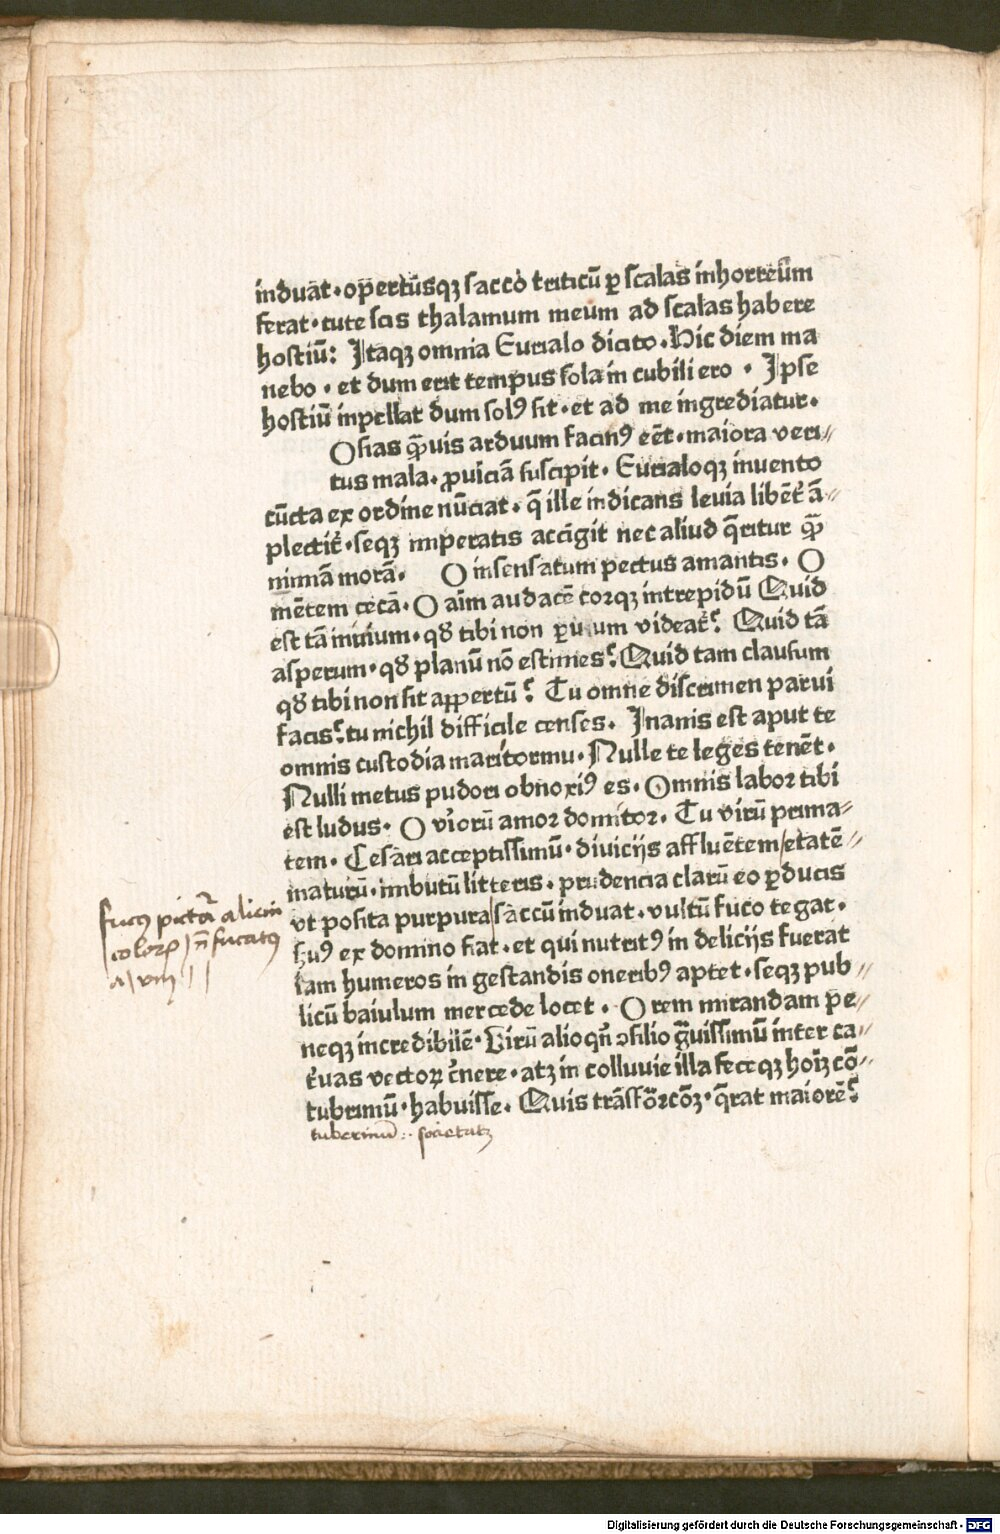 induat·opertusqꝫ sacco triticū ꝑ scalas inhorreum
ferat·tute scis thalamum meum ad scalas habere
hostiū: Itaqꝫ omnia Eurialo dicito·Hic diem ma
nebo·et dum erit tempus sola in cubili ero · Ipse
hostiū inpellat dum solꝰ sit·et ad me ingrediatur·
Osias qͣ̄uis arduum facinꝰ eēt·maiora veri⸗
tus mala·ꝓuīciā suscipit·Eurialoqꝫ inuento
cūcta ex ordine nūciat·q̄ ille indicans leuia libēt̉ ā⸗
plectit̉·seqꝫ imperatis accīgit nec aliud q̄ritur qͣ̄
nimiā morā· O insensatum pectus amantis· O
mētem cecā·O aīm audacē corqꝫ intrepidū Quid
est tā inuium·qđ tibi non ꝑuium videat̉? Quid tā
asperum·qđ planū nō estimes? Quid tam clausum
qđ tibi non sit apꝑertū? Tu omne discrimen parui
facis? tu nichil difficile censes· Inanis est aput te
omnis custodia maritormu·Nulle te leges tenēt·
Nulli metus pudori obnoxiꝰ es·Omnis labor tibi
est ludus· O v̉iorū amor domitor· Tu virū prima⸗
tem·Cesari acceptissimū·diuicijs affluētem/etatē⸗
maturū·imbutū litteris·prudencia clarū eo ꝑducis
vt posita purpura/saccū induat·vultū fuco tegat·
suꝰ ex domino fiat·et qui nutritꝰ in delicijs fuerat
iam humeros in gestandis oneribꝰ aptet·seqꝫ pub⸗
licū baiulum mercede locet· O rem mirandam pe⸗
neqꝫ incredibilē·Virū alioqn̄ ↄsilio gͣuissimū inter ca⸗
t̉uas vectoꝝ c̉nere·atꝫ in colluuie illa feceqꝫ hoīꝫ cō⸗
tubrimū·habuisse· Quis trāsfōrcōꝫ·q̄rat maiorē?
tuberinū :· societatꝫ
fucꝰ
colorꝫ n̄ fucatꝰ